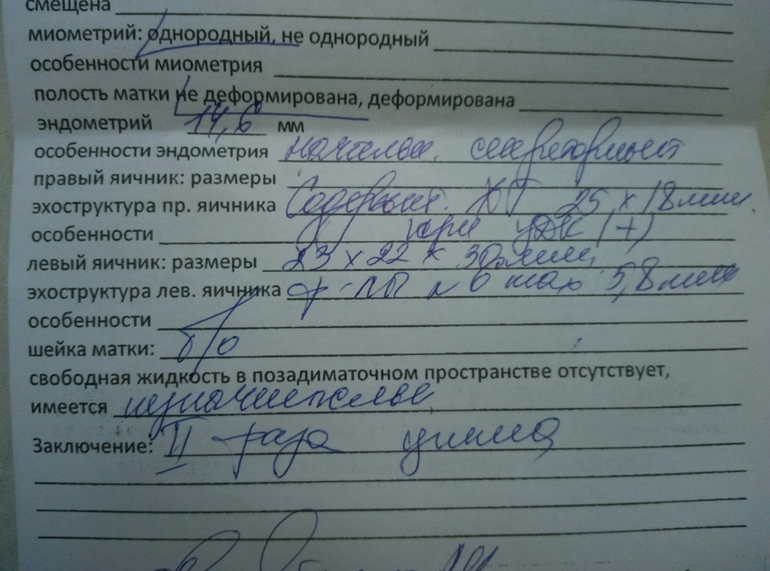 смещена
миометрий: однородный, не однородный
особенности миометрия
полость матки не деформирована, деформирована
эндометрий 14,6 мм
особенности эндометрия начальн. секреторный
правый яичник: размеры
эхоструктура пр. яичника Содержит. ЖТ 25 x 18 мм.
особенности при ЦДК (+)
левый яичник: размеры 23 x 22 x 30 мм
эхоструктура лев. яичника ф-лы n 6 max 5,8 мм
особенности
шейка матки: б/о
свободная жидкость в позадиматочном пространстве отсутствует,
имеется незначительное
Заключение: II фаза цикла